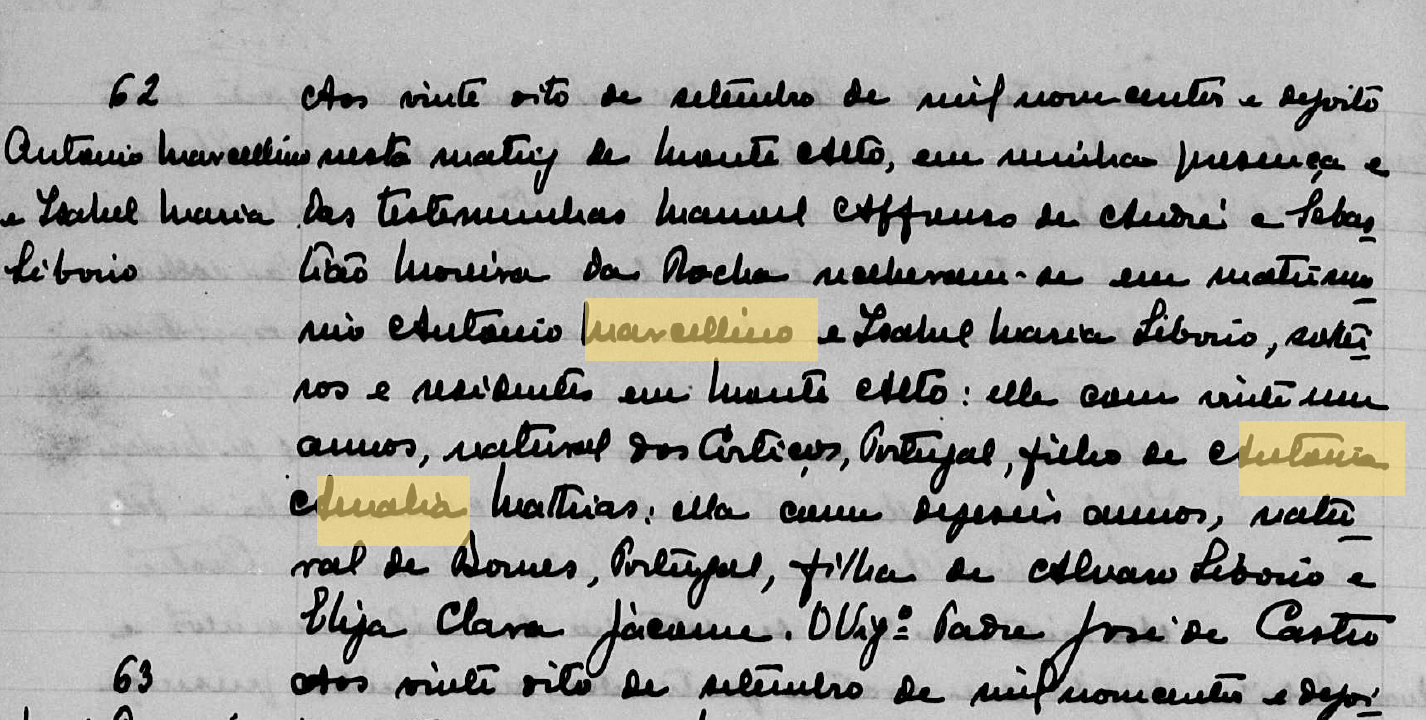 62
Antonio Marcellino
e Isabel Maria
Liborio
Aos vinte oito de setembro de mil novecentos e dezoito
nesta matriz de Monte Alto, em minha presença e
das testemunhas Manuel Affonso de André e Sebas
tião Moreira da Rocha receberam-se em matrimo
nio Antonio Marcellino e Isabel Maria Liborio, soltei
ros e residentes em Monte Alto: elle com vinte um
annos, natural dos Cortiços, Portugal, filho de Antonia
Amalia Mathias; ella com dezeseis annos, natu
ral de Bornes, Portugal, filha de Alvaro Liborio e
Eliza Clara Jácome. O Vigº Padre José de Castro
63
Aos vinte oito de setembro de mil novecentos e dezoi